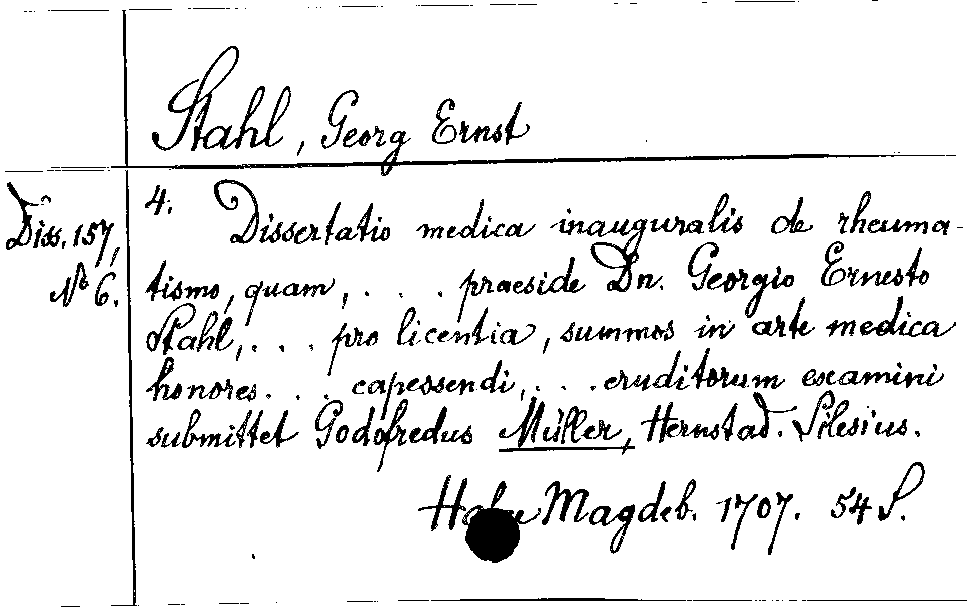 Stahl, Georg Ernst
Diss. 157,
No 6.
4. Dissertatio medica inauguralis de rheuma-
tismo, quam, . . . praeside Dn. Georgio Ernesto
Stahl, . . . pro licentia, summos in arte medica
honores . . . capessendi, . . . eruditorum examini
submittet Godofredus Müller, Hernstad. Silesius.
Halae Magdeb. 1707. 54 S.